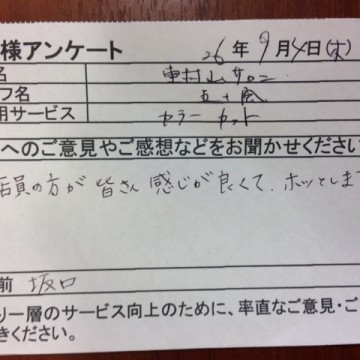 様アンケート 26年9月4日(木)
名 東村山サロン
フ名 五十嵐
用サービス カラー カット
へのご意見やご感想などをお聞かせください
店員の方が皆さん感じが良くて、ホッとしま
前 坂口
り一層のサービス向上のために、率直なご意見・ご
きください。